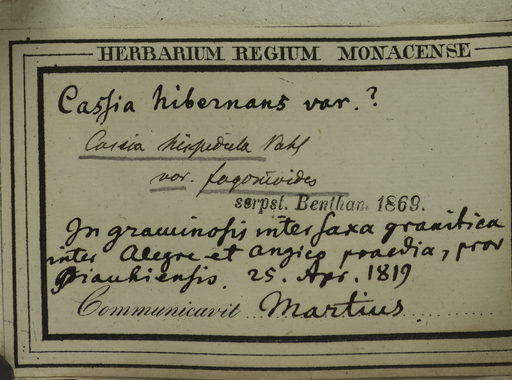 HERBARIUM REGIUM MONACENSE
Caſsia hibernans var.?
Cassia hispidula Vahl
var. fagonioides
scrpst. Bentham 1869.
In graminoſis inter ſaxa granitica
inter Alegre et Angico praedia, prov
Piauhiensis. 25. Apr. 1819
Communicavit Martius